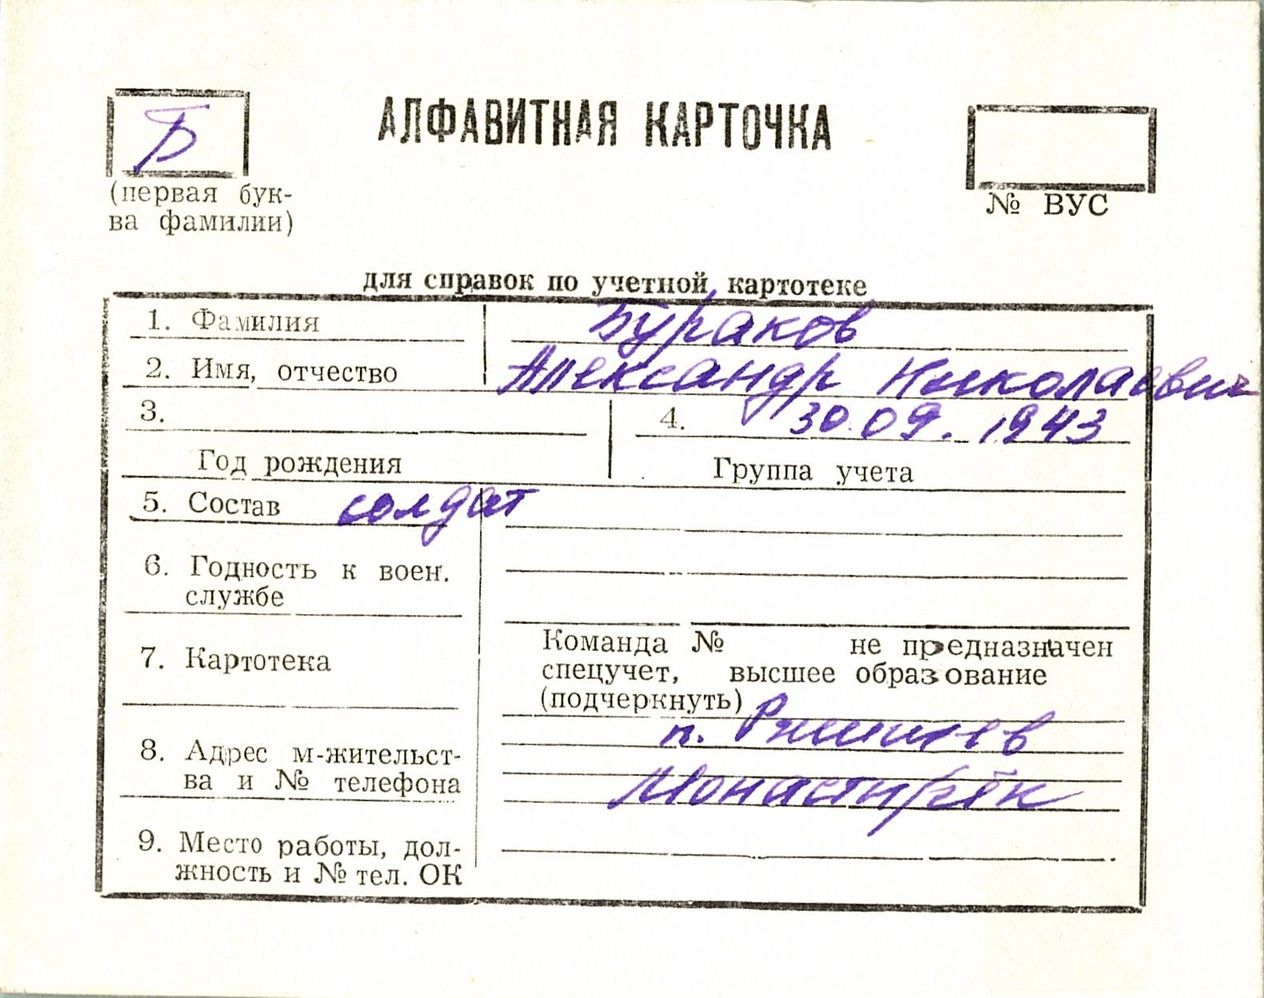 Б
АЛФАВИТНАЯ КАРТОЧКА
(первая бук-
ва фамилии)
№ ВУС
для справок по учетной картотеке
1. Фамилия Бураков
2. Имя, отчество Александр Николаевич
3. 4. 30.09.1943
Год рождения Группа учета
5. Состав солдат
6. Годность к воен.
службе
7. Картотека
Команда № не предназначен
спецучет, высшее образование
(подчеркнуть)
8. Адрес м-жительст-
ва и № телефона
п. Ржищев
Монастирёк
9. Место работы, дол-
жность и № тел. ОК